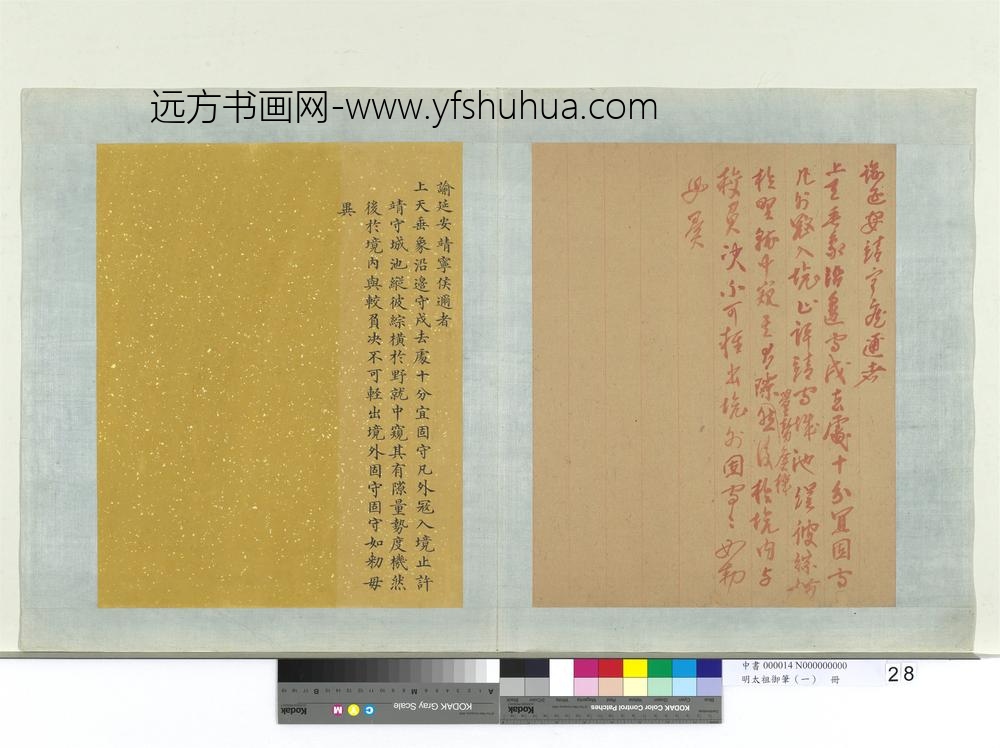 远方书画网-www.yfshuhua.com
諭延安靖寧侯邇者
上天垂象沿邊守戍去處十分宜固守
凡外寇入境止許靖守城池縱彼綜橫
於野就中窺其有隙量勢度機然後於境内与
較負决不可輕出境外固守〻如勑
毋異
諭延安靖寧侯邇者
上天垂象沿邊守戍去處十分宜固守凡外寇入境止許
靖守城池縱彼綜橫於野就中窺其有隙量勢度機然
後於境内與較負决不可輕出境外固守固守如勑毋
異
中書 000014 N000000000
明太祖御筆（一） 冊
28
Kodak
C Y M
KODAK Gray Scale
A
M
B
Kodak
KODAK Color Control Patches
Blue
Cyan
Green
Yellow
Red
Magenta
White
3/Color
Black